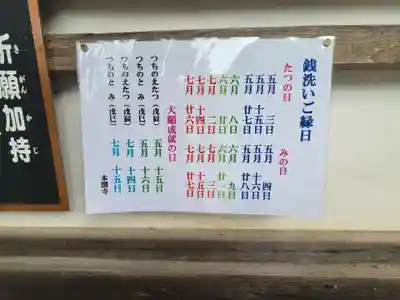 銭洗いご縁日
たつの日 みの日
五月 三日 五月 四日
五月 十五日 五月 十六日
五月 廿七日 五月 廿八日
六月 八日 六月 九日
六月 廿日 六月 廿一日
七月 二日 七月 三日
七月 十四日 七月 十五日
七月 廿六日 七月 廿七日
大願成就の日
つちのえたつ(戊辰) 五月 十五日
つちのと み(戊巳) 五月 十六日
つちのえたつ(戊辰) 七月 十四日
つちのと み(戊巳) 七月 十五日
本圀寺
祈願加持
がんかじ